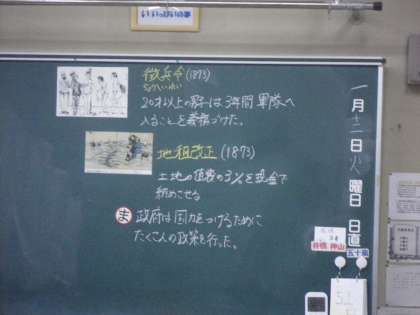 徴兵令(1873)
ちょうへいれい
20才以上の男子は3年間軍隊へ
入ることを義務づけた。
地租改正(1873)
土地の価格の3%を現金で
納めさせる
ま 政府は国力をつけるために
たくさんの政策を行った。
一月十一日火曜日 日直